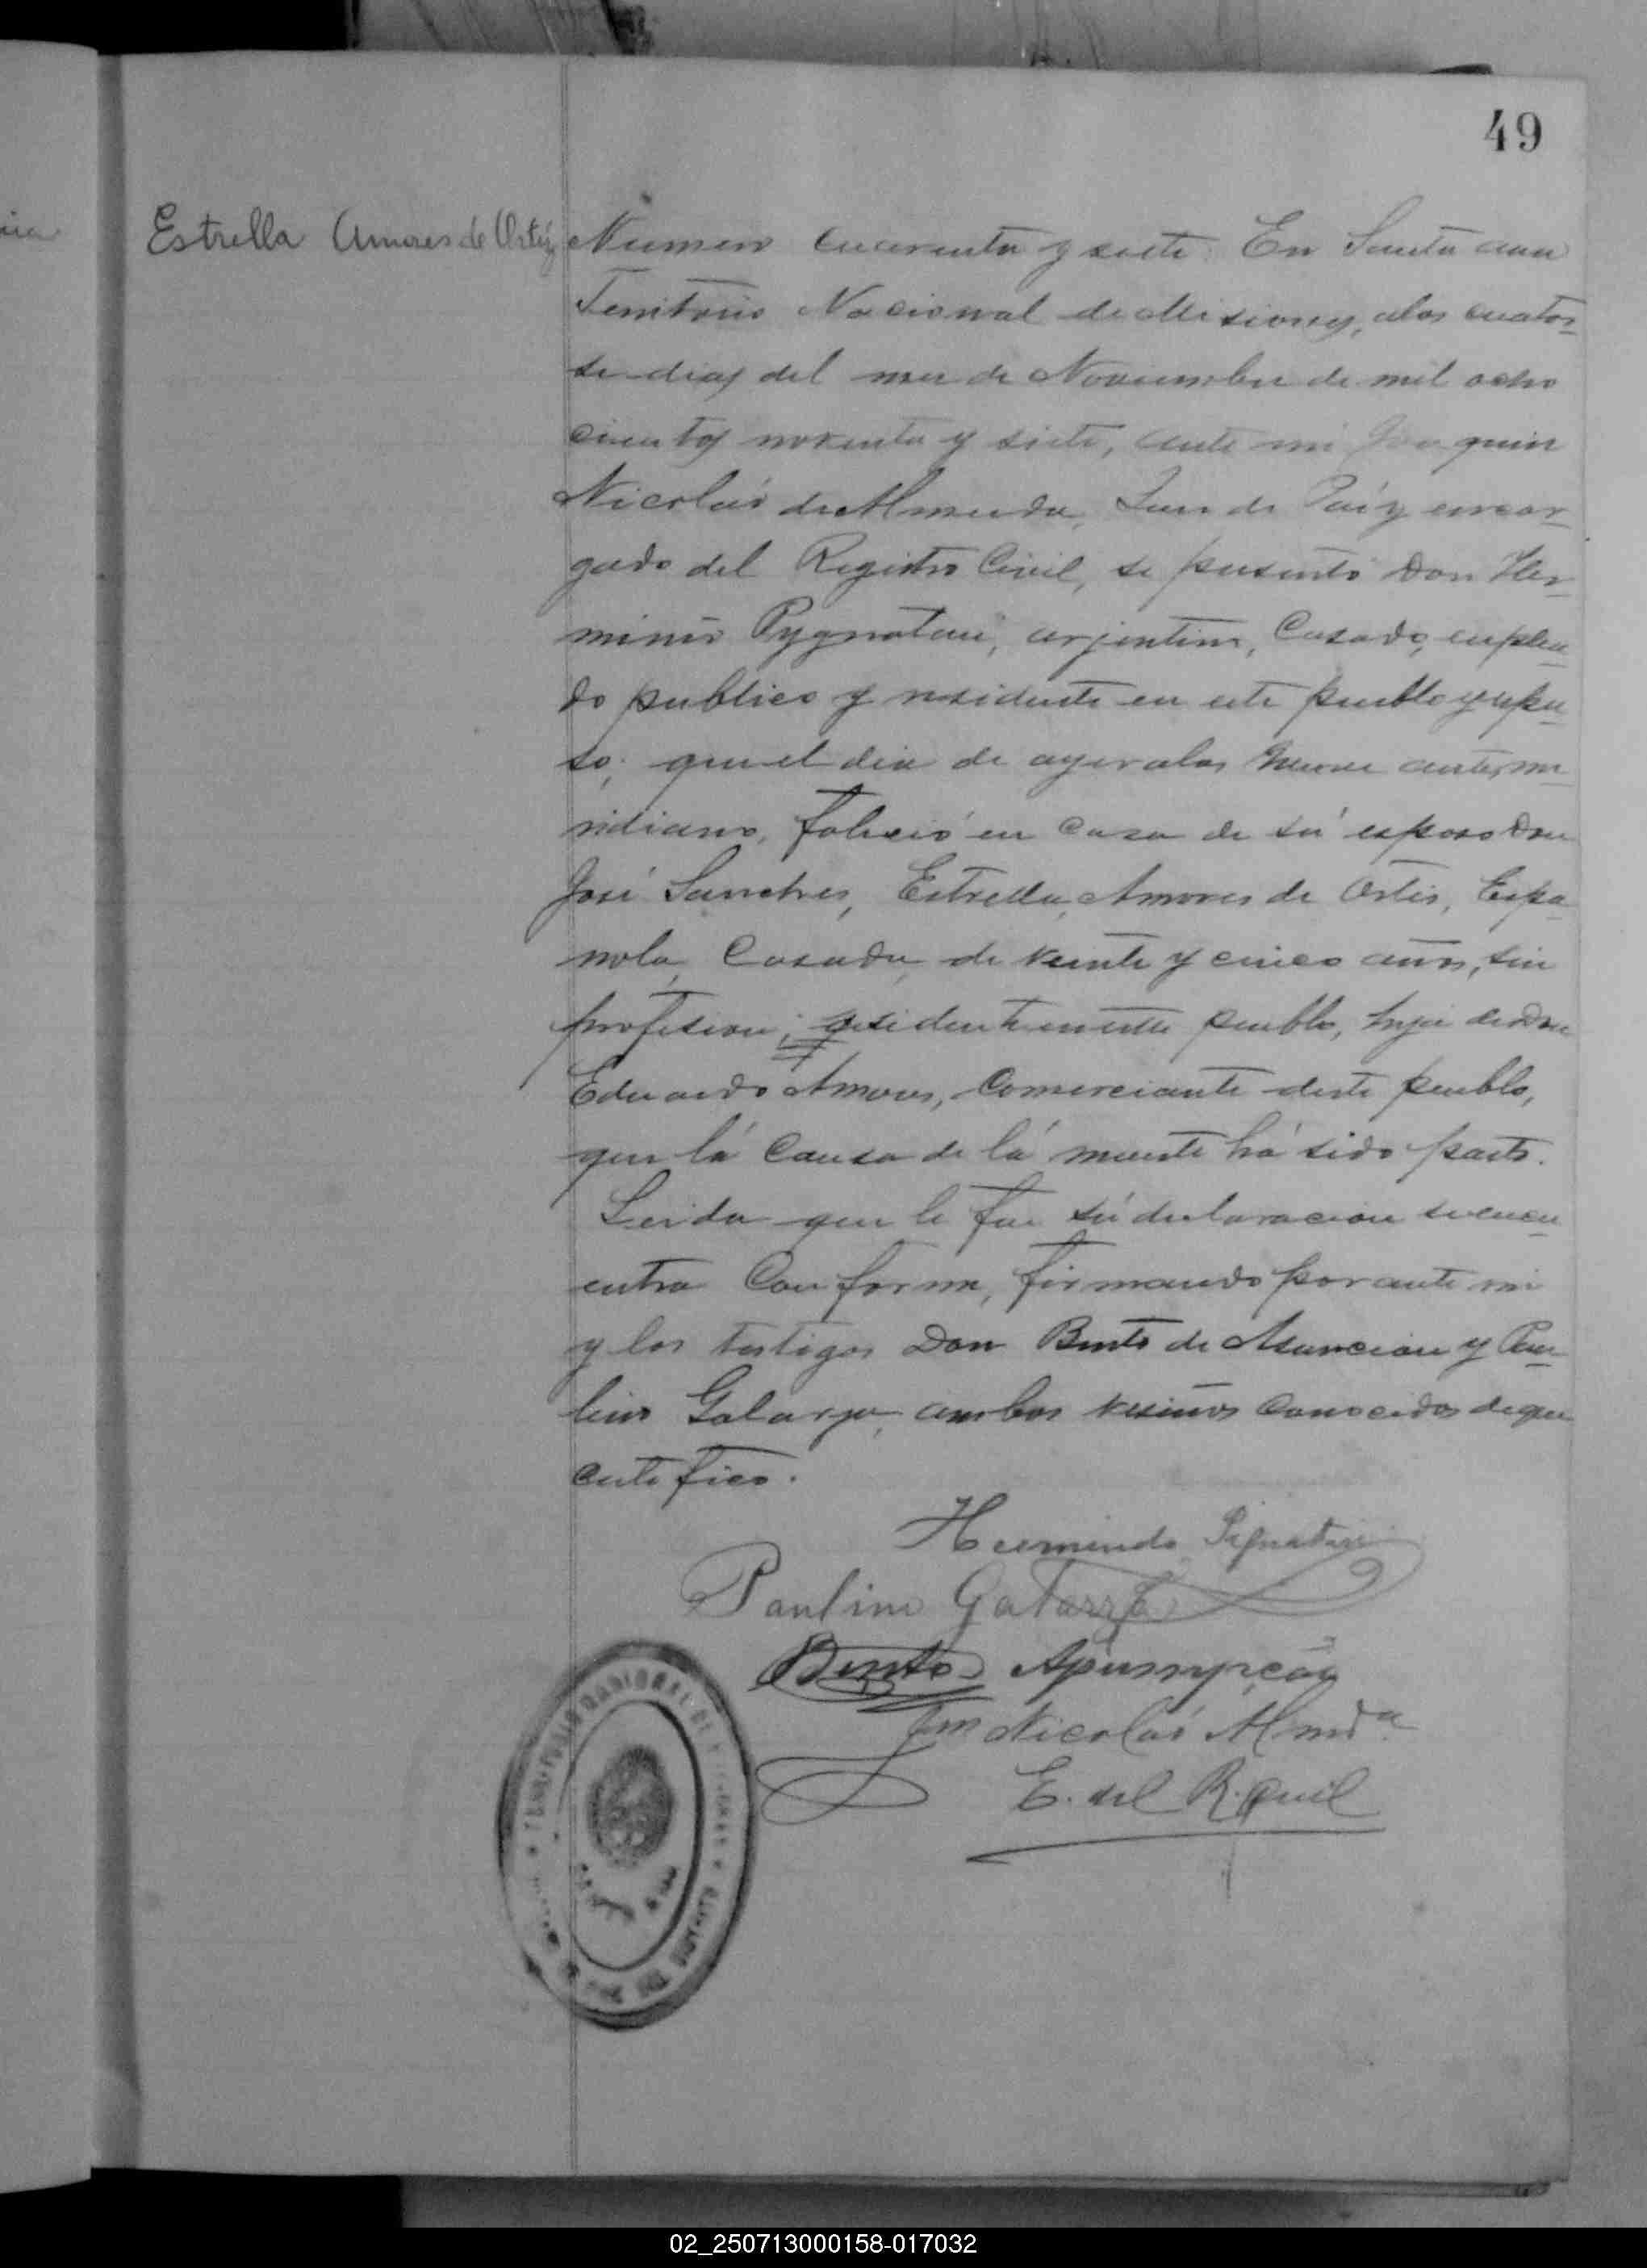 49
Estrella Amores de Ortiz
Numero cuarenta y siete. En Santa ana
Territorio Nacional de Misiones, alos cuator-
se dias del mes de Noviembre de mil ocho
cientos noventa y siete, ante mi Joaquin
Nicolás de Almeida, Jues de Paz y encar-
gado del Registro Civil, se presentó Don Her-
minio Pygnatari, arjentino, Casado, emplea-
do publico y residente en este pueblo y espu-
so; que el dia de ayer alas nueve anteme-
ridiano, falesió en casa de sú esposo Don
José Sanches, Estrella Amores de Ortis, Espa-
nola, Casada, de veinte y cinco años, sin
profesion, residente en este pueblo, hija de Don
Eduardo Amores, Comerciante deste pueblo,
que lá causa de lá muerte há sido parto.
Leida que le fue sú declaracion se encu-
entra Conforme, firmando por ante mi
y los testigos Don Bento de Asuncion y Pau-
lino Galarza, ambos vesinos conocidos de que
certifico.
Hermindo Pignatari
Paulino Galarza
Bento
Jm Nicolás Almda
E. del R. Civil
TERRITORIO NACIONAL DE MISIONES
02_250713000158-017032